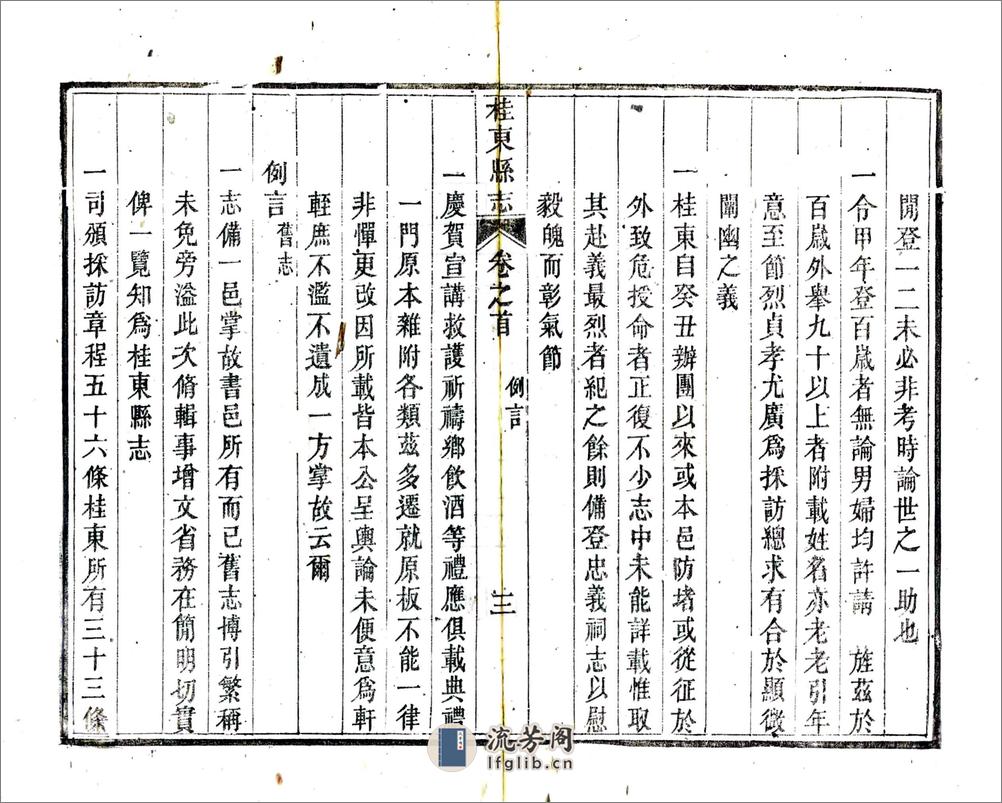 間登一二未必非考時論世之一助也
一令甲年登百歲者無論男婦均許請　旌茲於
百歲外舉九十以上者附載姓名亦老老引年
意至節烈貞孝尤廣爲採訪總求有合於顯微
闡幽之義
一桂東自癸丑辦團以來或本邑防堵或從征於
外致危授命者正復不少志中未能詳載惟取
其赴義最烈者紀之餘則備登忠義祠志以慰
毅魄而彰氣節
桂東縣志　卷之首　例言　三
一慶賀宣講救護祈禱鄉飲酒等禮應俱載典禮
一門原本雜附各類茲多遷就原板不能一律
非憚更改因所載皆本公呈輿論未便意爲軒
輊庶不濫不遺成一方掌故云爾
例言舊志
一志備一邑掌故書邑所有而已舊志博引繁稱
未免旁溢此次脩輯事增文省務在簡明切實
俾一覽知爲桂東縣志
一司頒採訪章程五十六條桂東所有三十三條
流芳阁
lfglib.cn